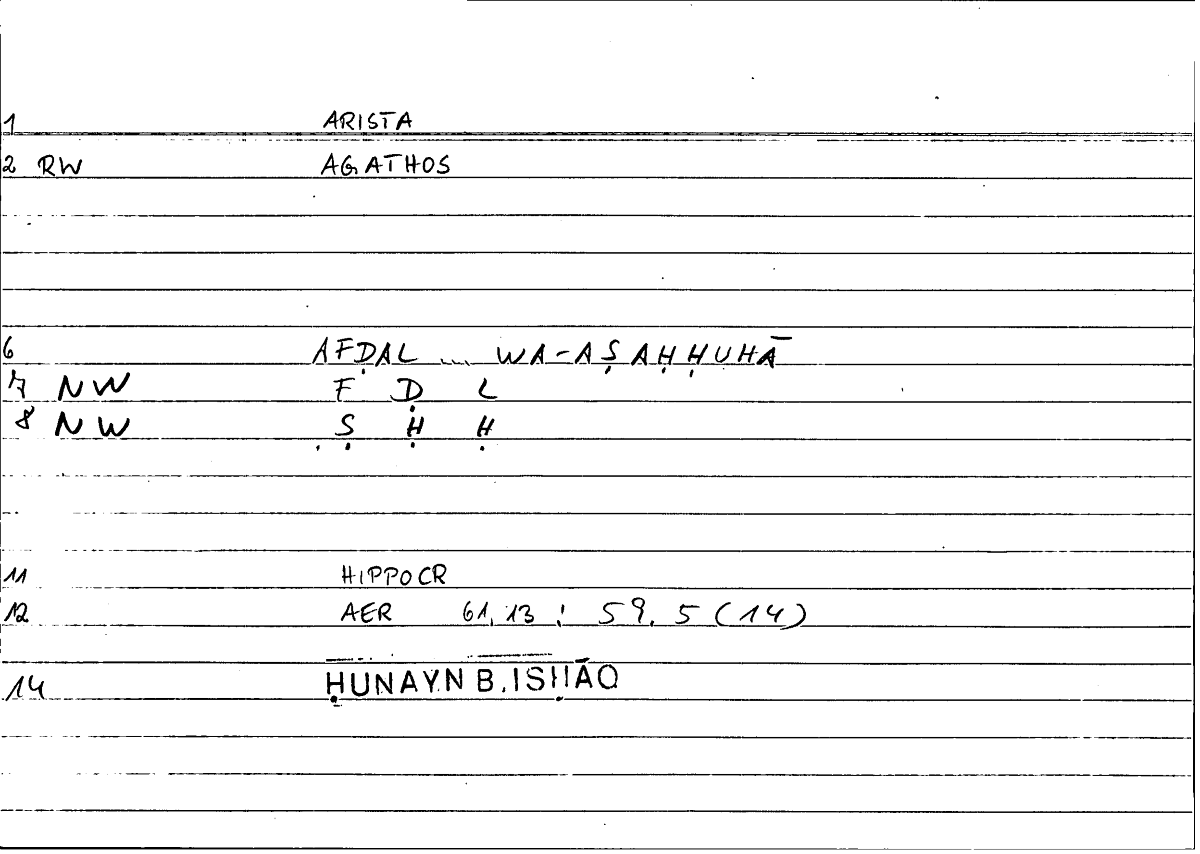 1 ARISTA
2 RW AGATHOS
6 AFḌAL ... WA-AṢAḤḤUHĀ
7 NW F Ḍ L
8 NW Ṣ Ḥ Ḥ
11 HIPPOCR
12 AER 61,13 : 59.5 (14)
14 ḤUNAYN B.ISḤĀQ